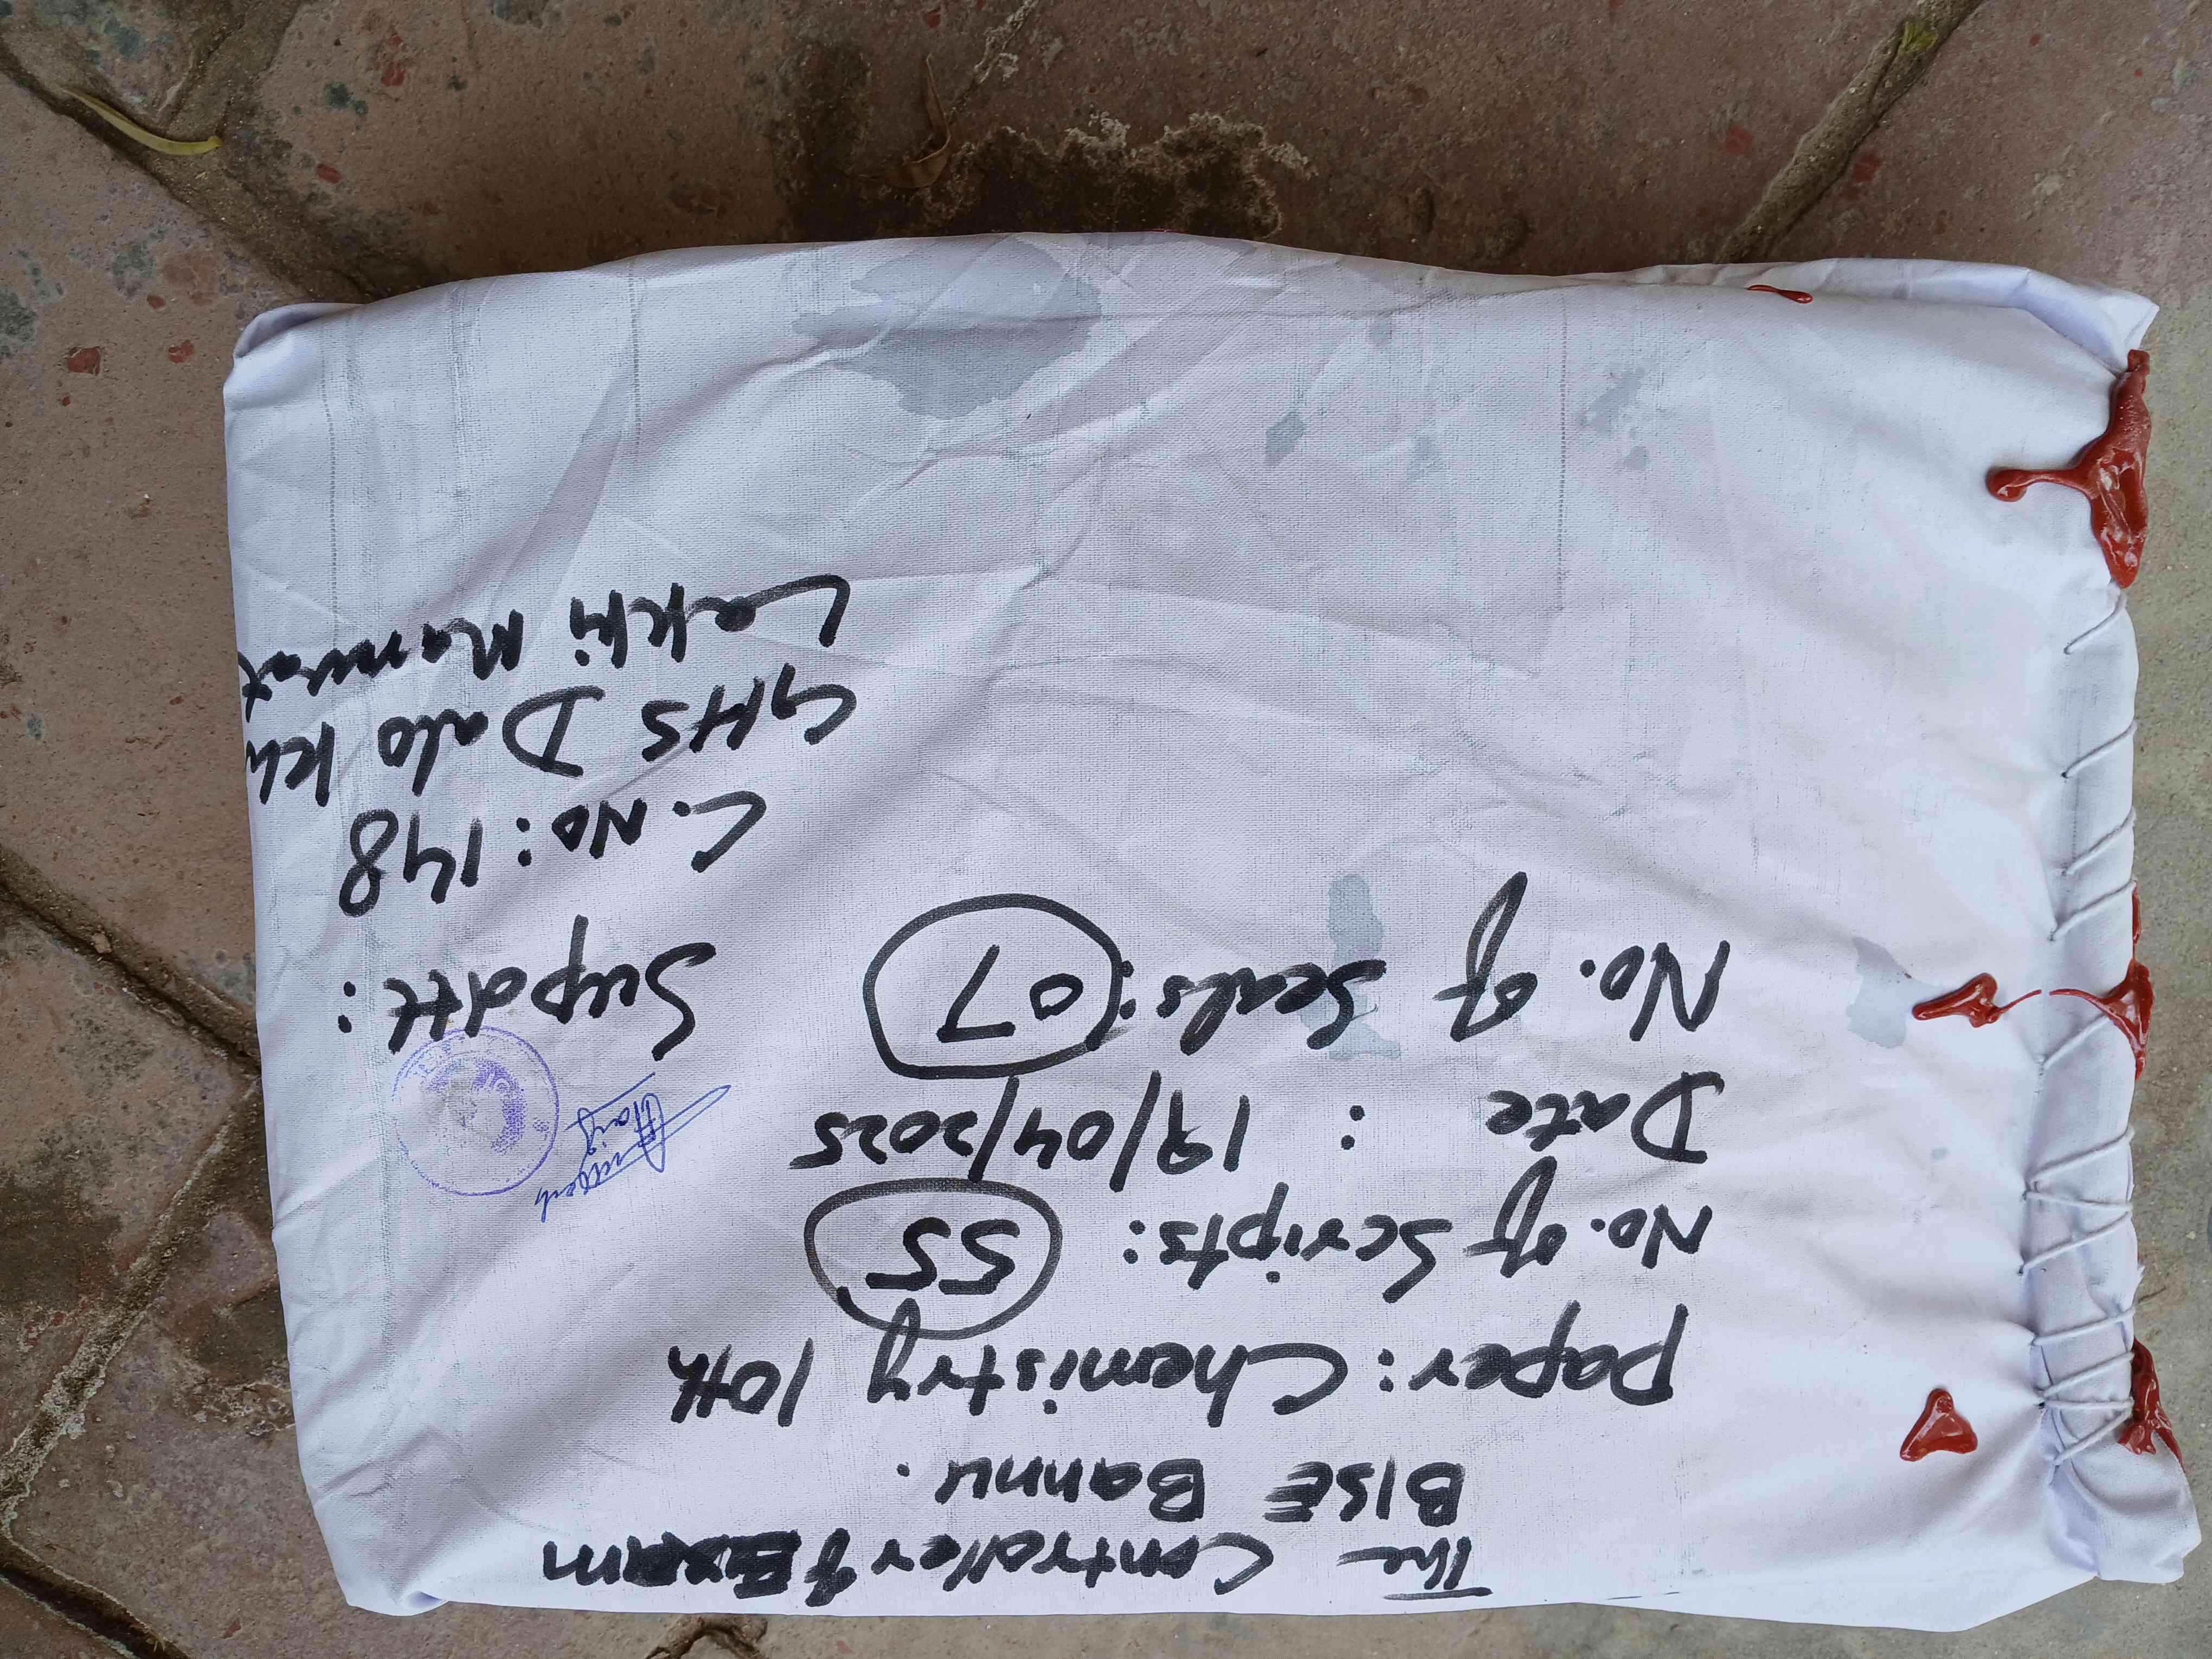 The Controller of Exam
BISE Bannu.
Paper: Chemistry 10th
No. of Scripts: 55
Date : 19/04/2025
No. of Seals: 07
Supdtt:
C.No: 148
GHS Dalo Kh
Lakki Marwat